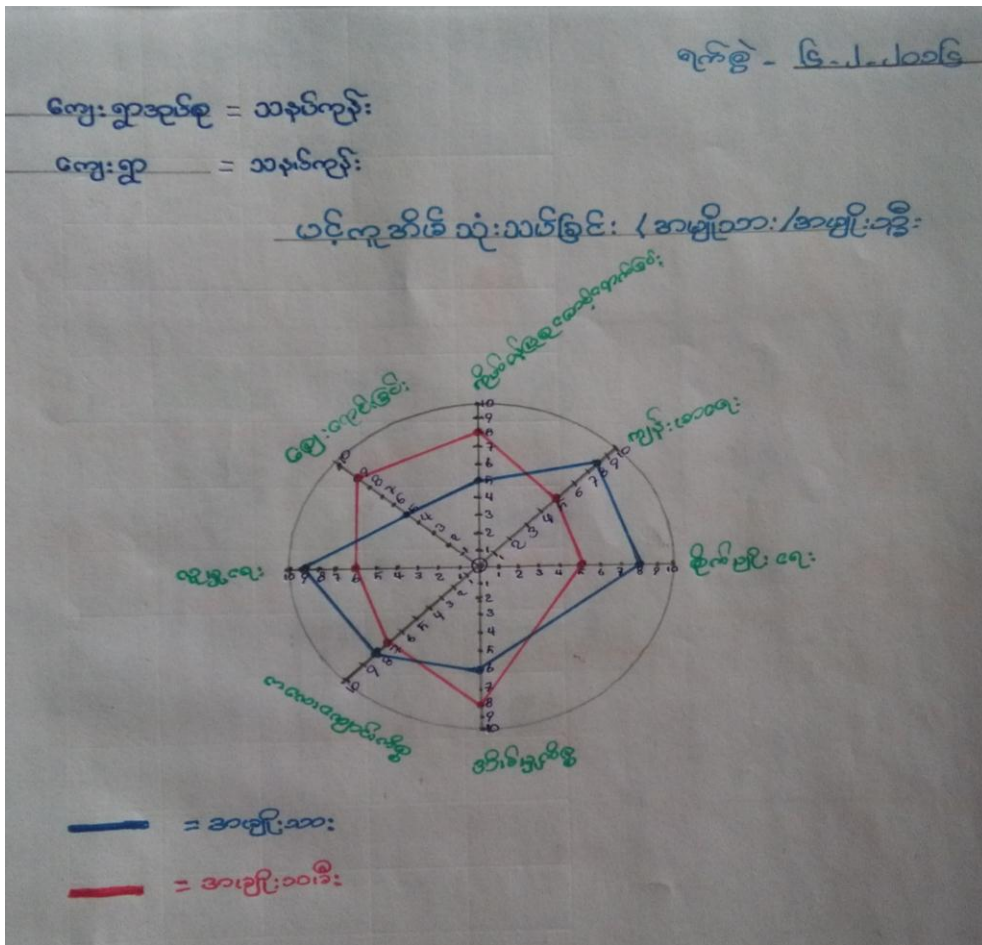 ရက်စွဲ - ၆-၂-၂၀၁၆
ကျေးရွာအုပ်စု = သနပ်ကုန်း
ကျေးရွာ = သနပ်ကုန်း
ပင့်ကူအိမ် သုံးသပ်ခြင်း (အမျိုးသား/အမျိုးသမီး
ဈေးရောင်းခြင်း
ကျန်းမာရေး
လူမှုရေး
စိုက်ပျိုးရေး
ကလေးကျောင်းကိစ္စ
အိမ်မှုကိစ္စ
10 9 8 7 6 5 4 3 2 1
1 2 3 4 5 6 7 8 9 10
= အမျိုးသား
= အမျိုးသမီး